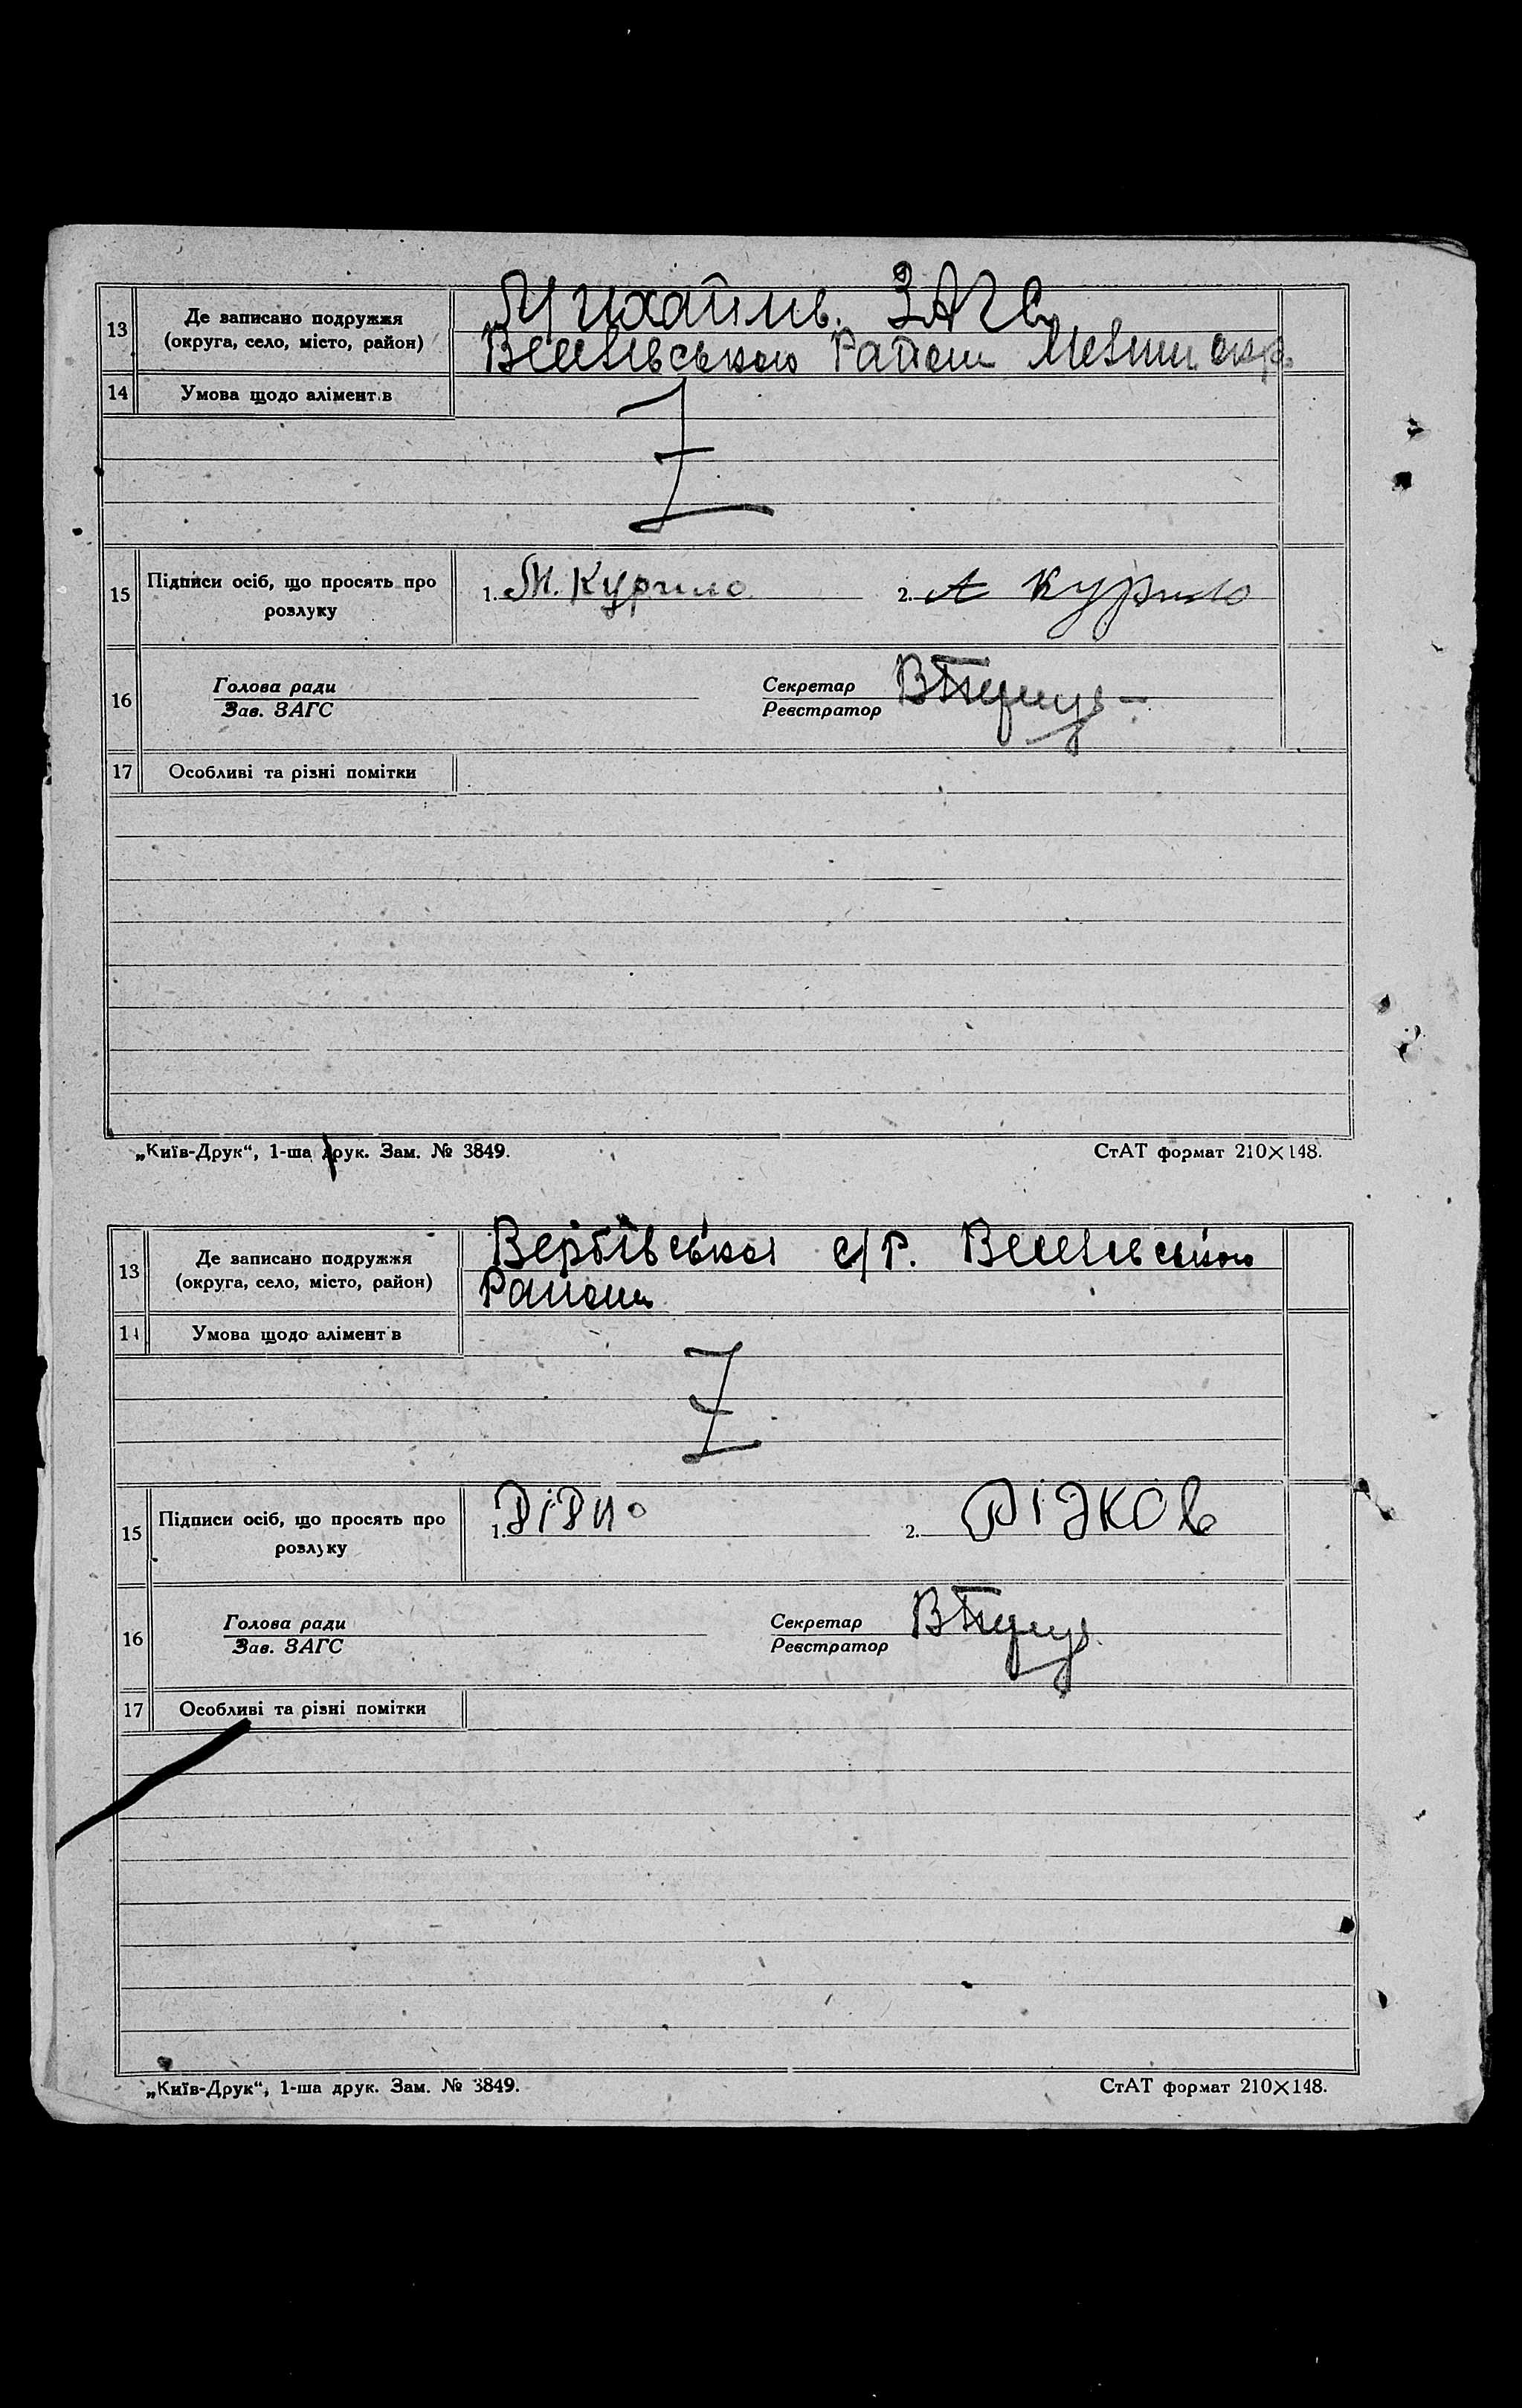 13 Де записано подружжя
(округа, село, місто, район)
Михайлів. ЗАГС
Району
14 Умова щодо алімент в
15 Підписи осіб, що просять про
розлуку
1. М. Курило 2. А Курило
16 Голова ради
Зав. ЗАГС
Секретар
Реєстратор
17 Особливі та різні помітки
„Київ-Друк“, 1-ша друк. Зам. № 3849. СтАТ формат 210×148.
13 Де записано подружжя
(округа, село, місто, район)
Вербівська с/Р.
Району
14 Умова щодо алімент в
15 Підписи осіб, що просять про
розлуку
1. 2.
16 Голова ради
Зав. ЗАГС
Секретар
Реєстратор
17 Особливі та різні помітки
„Київ-Друк“, 1-ша друк. Зам. № 3849. СтАТ формат 210×148.